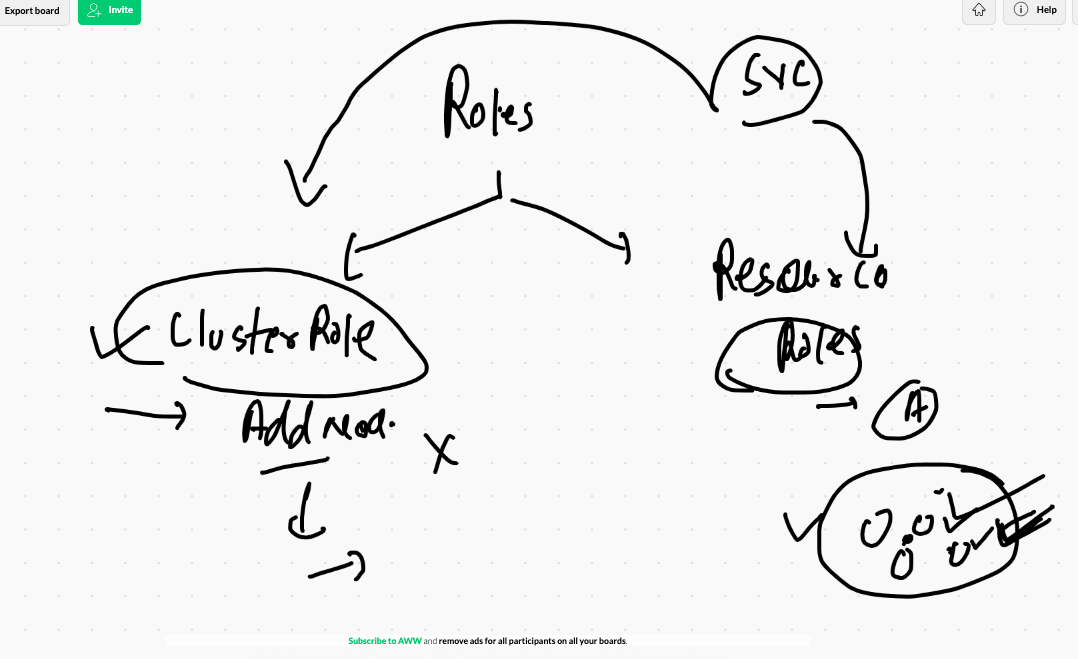 Export board
Invite
Help
SVC
Roles
Cluster Role
Roles
Add
A
Subscribe to AWW and remove ads for all participants on all your boards.